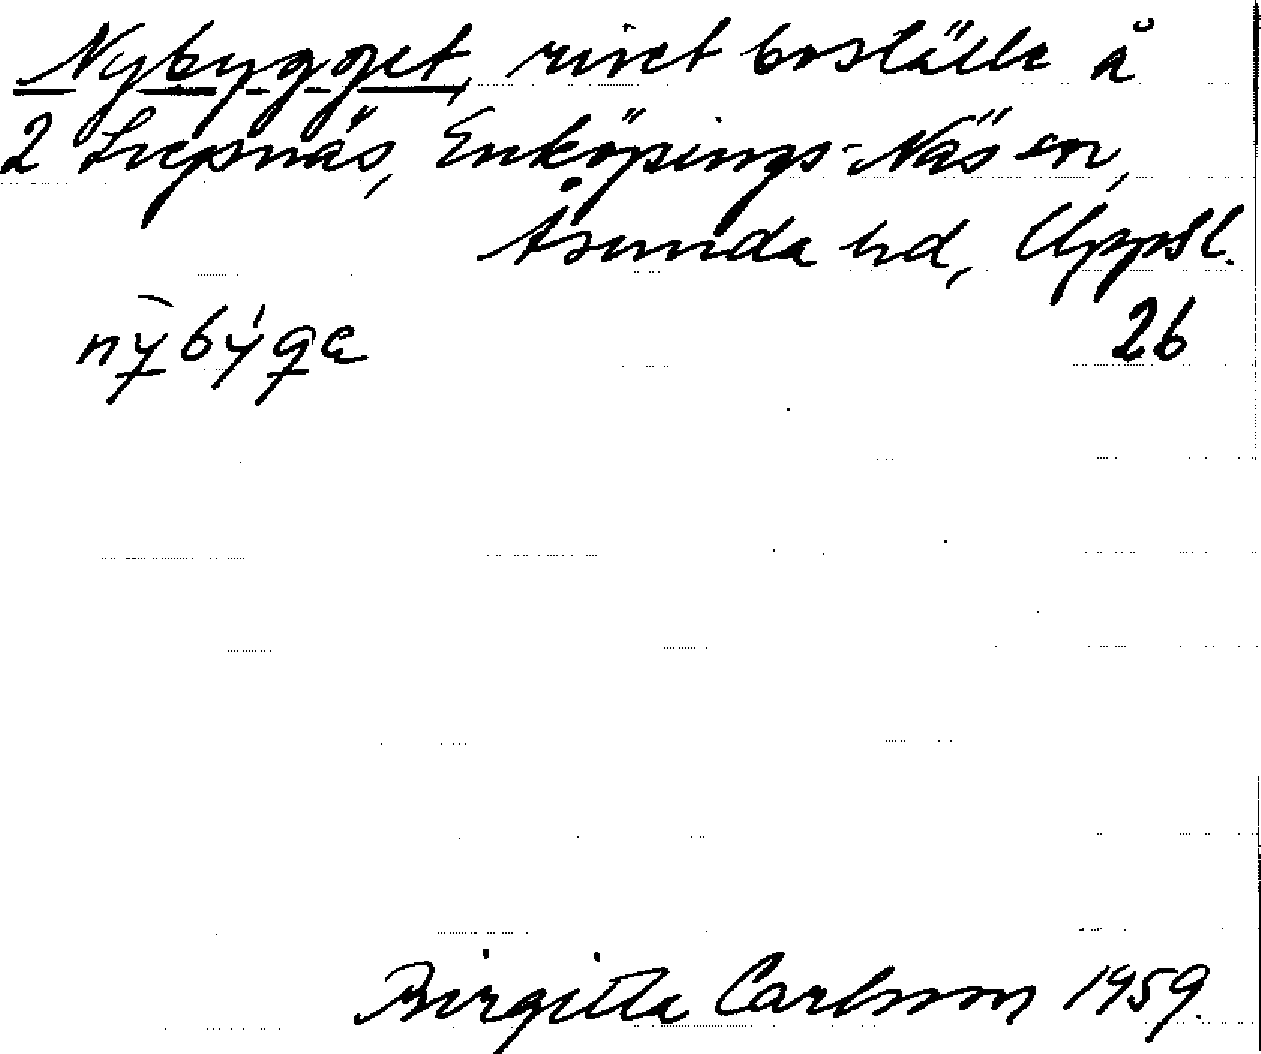 Nybygget, rivet boställe å
2 Lugnäs, Enköpings-Näs sn,
Åsunda hd, Uppsl.
26
Birgitta Carlsson 1959.